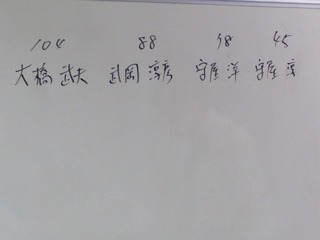 104 88 98 45
大橋 武夫 武岡 淳彦 守屋 洋 守屋 淳